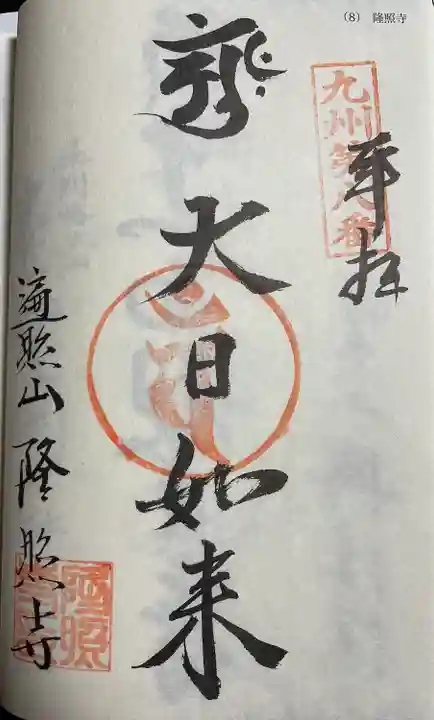 (8) 隆照寺
九州第八番
奉拝
大日如来
遍照山 隆照寺
隆照寺